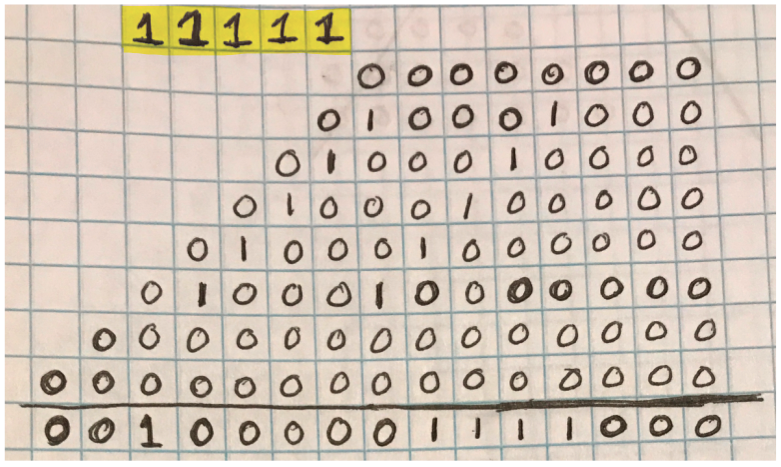 1 1 1 1 1
0 0 0 0 0 0 0 0
0 1 0 0 0 1 0 0 0
0 1 0 0 0 1 0 0 0 0
0 1 0 0 0 1 0 0 0 0 0
0 1 0 0 0 1 0 0 0 0 0 0
0 1 0 0 0 1 0 0 0 0 0 0 0
0 0 0 0 0 0 0 0 0 0 0 0 0 0
0 0 0 0 0 0 0 0 0 0 0 0 0 0 0
0 0 1 0 0 0 0 0 1 1 1 1 0 0 0